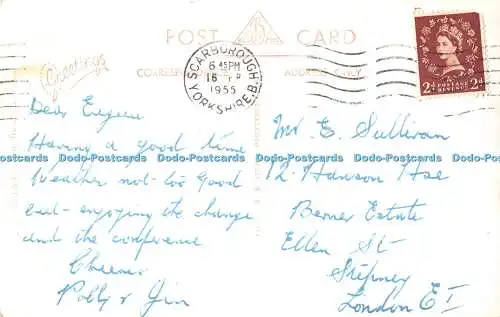 POST CARD
Greetings
CORRESP
ADDRESS ONLY
SCARBOROUGH
6.45PM
1955
YORKSHIRE.B.
2d POSTAGE REVENUE 2d
Dear Eugene
Having a good time
Weather not too good
but - enjoying the change
and the conference
Cheerio
Polly & Jim
Mr E. Sullivan
12 Hanson Hse
Berner Estate
Ellen St
Stepney
London E I
Dodo-Postcards Dodo-Postcards Dodo-Postcards Dodo-Postcards Dodo-Postcards